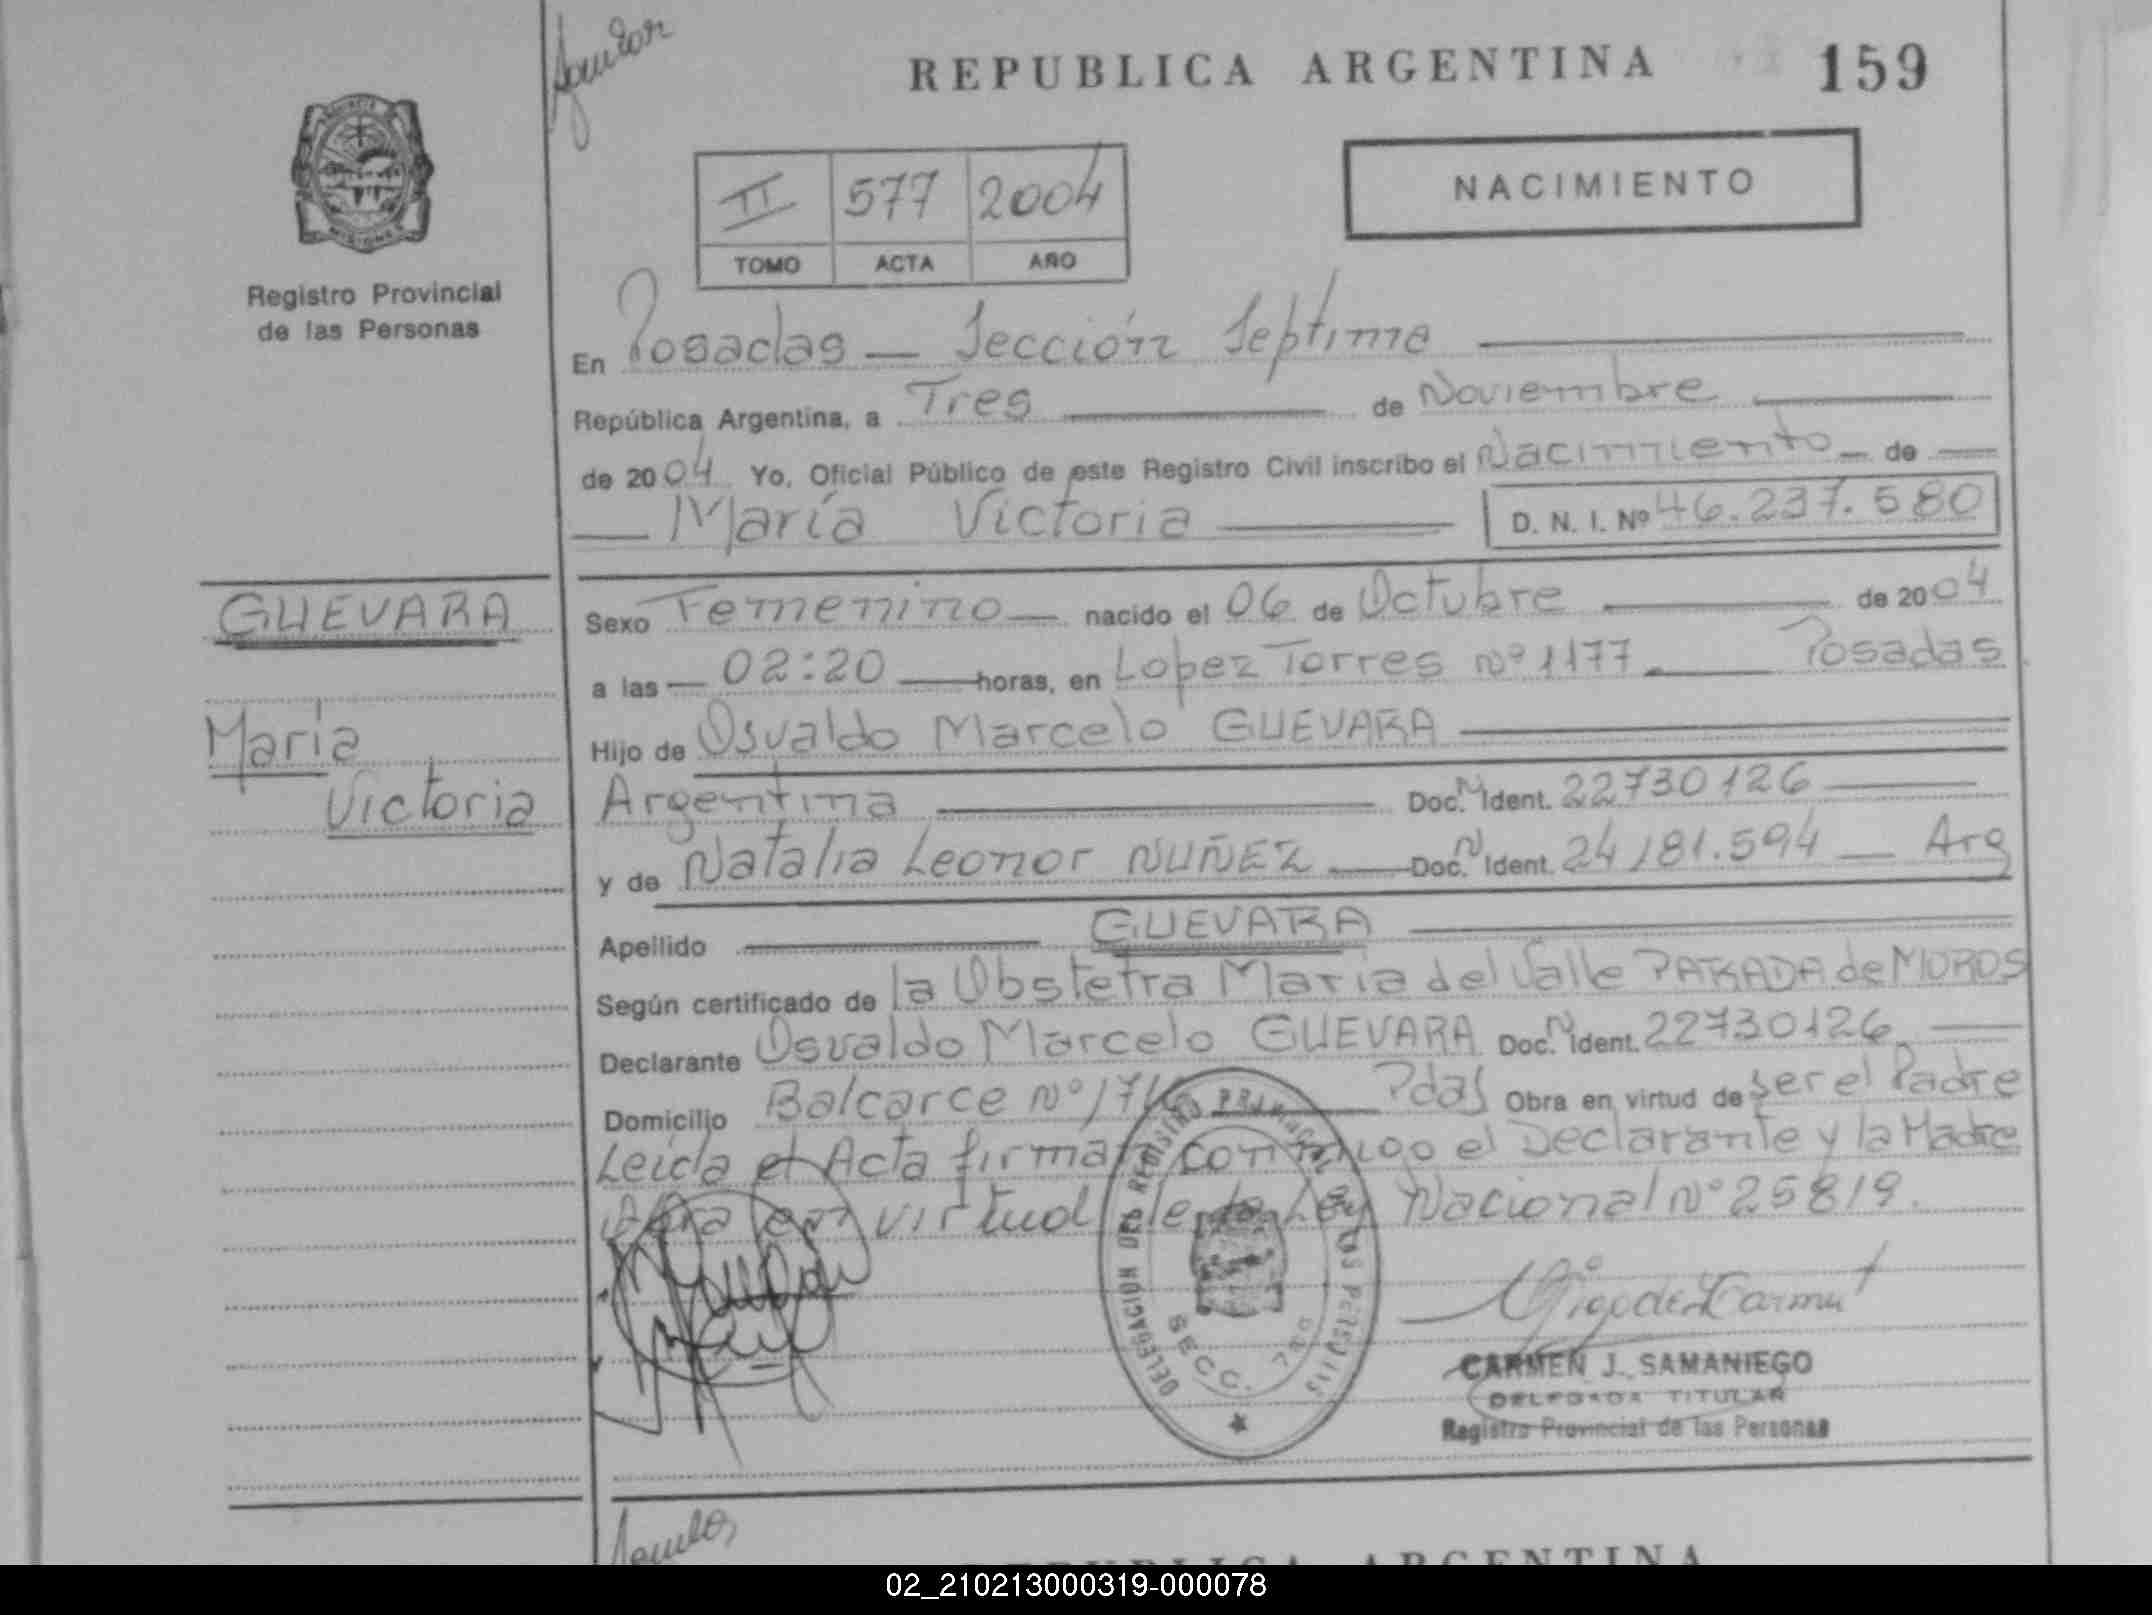 REPUBLICA ARGENTINA 159
NACIMIENTO
II 577 2004
TOMO ACTA AÑO
Registro Provincial
de las Personas
En Posadas — Sección Septima
República Argentina, a Tres de Noviembre
de 2004 Yo, Oficial Público de este Registro Civil inscribo el Nacimiento de
María Victoria D. N. I. Nº 46.237.580
GUEVARA
María
Victoria
Sexo Femenino nacido el 06 de Octubre de 2004
a las 02:20 horas, en Lopez Torres nº 1177 Posadas
Hijo de Osvaldo Marcelo GUEVARA
Argentina Doc. N Ident. 22730126
y de Natalia Leonor NUÑEZ Doc. N Ident. 24181.594 Arg
Apellido GUEVARA
Según certificado de la Obstetra Maria del Valle PARADA de MOROS
Declarante Osvaldo Marcelo GUEVARA Doc. N Ident. 22730126
Domicilio Balcarce Nº Pdas Obra en virtud de ser el Padre
Leida el Acta firman conmigo el Declarante y la Madre
en virtud de la Ley Nacional Nº 25819.
DELEGACION DEL REGISTRO PROVINCIAL DE LAS PERSONAS
SECC. 7ma
CARMEN J. SAMANIEGO
DELEGADA TITULAR
Registro Provincial de las Personas
REPUBLICA ARGENTINA
02_210213000319-000078